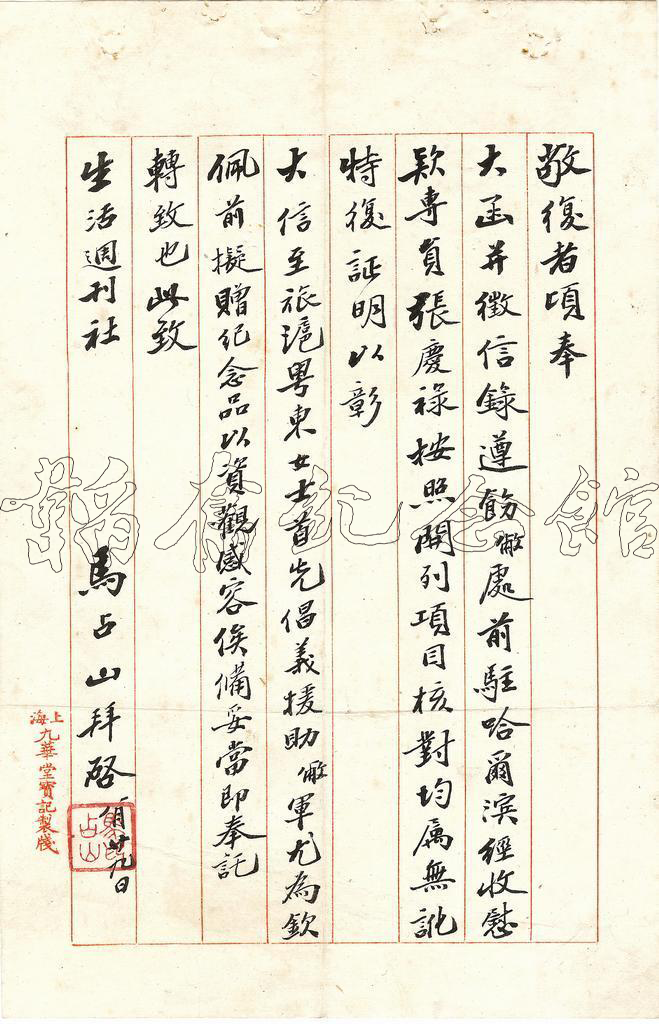 敬復者頃奉
大函并徵信錄遵飭敝處前駐哈爾濱經收慰
欵專員張慶祿按照開列項目核對均屬無訛
特復証明以彰
大信至旅滬粵東女士首先倡義援助敝軍尤為欽
佩前擬贈紀念品以資觀感容俟備妥當即奉託
轉致也此致
生活週刊社
馬占山拜啓 一月廿九日
馬占山
上海九華堂寶記製牋
韜奮紀念館